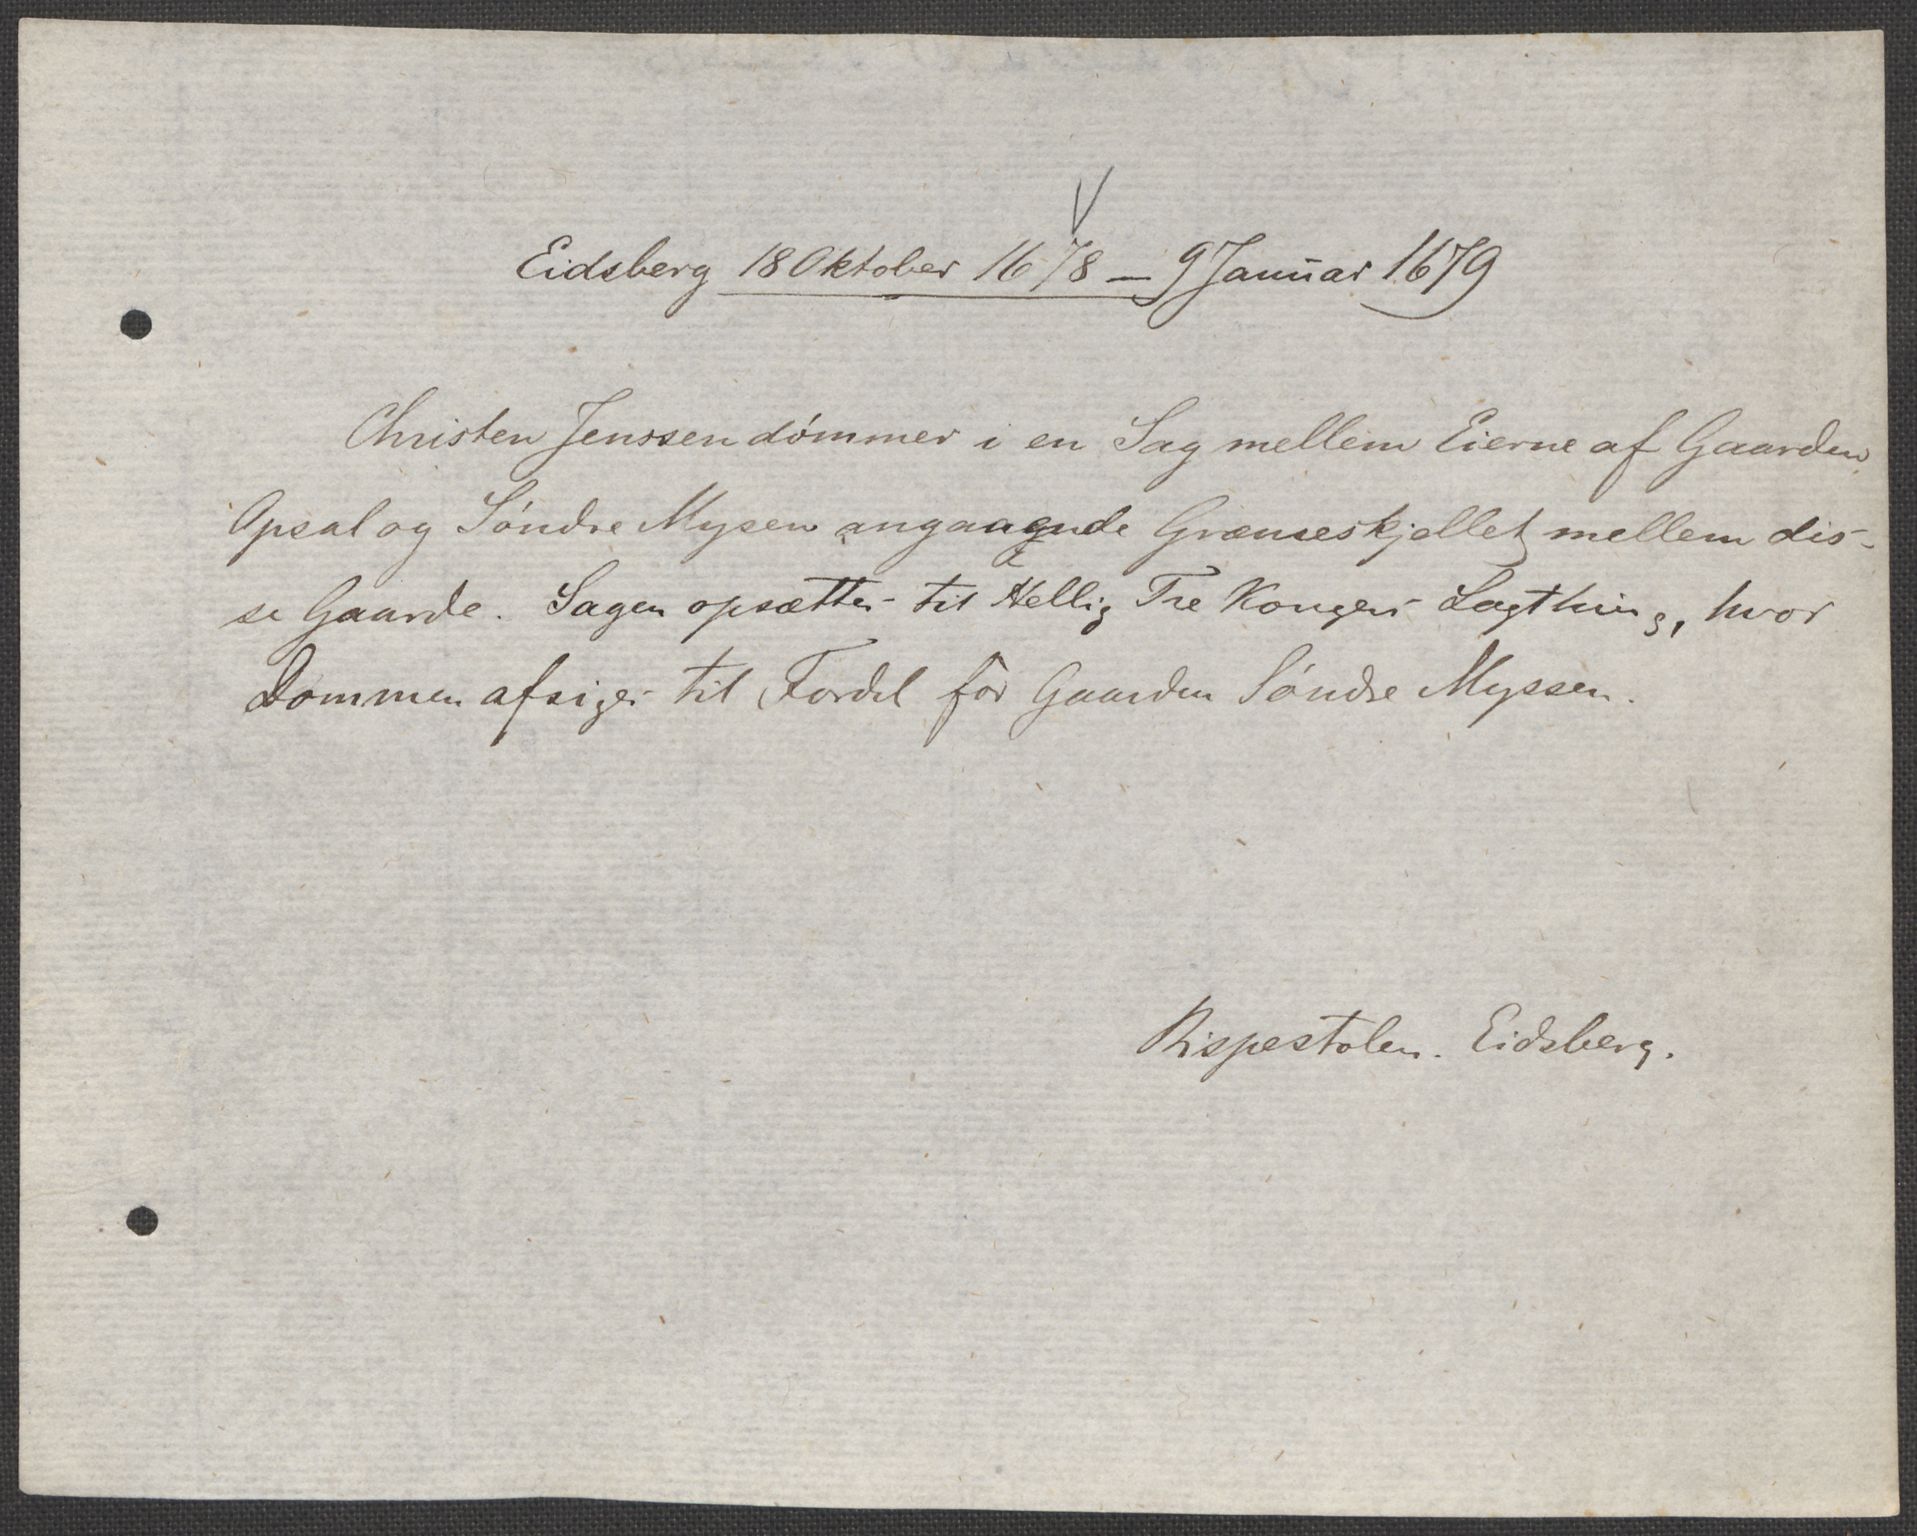 Eidsberg 18 Oktober 1678 – 9 Januar 1679
Christen Jenssen dómmer i en Sag mellem Eierne af Gaarden
Opsal og Sóndre Mysen angaaende Grænseskjellet mellem dis-
se Gaarde. Sagen opsættes til Hellig Tre Konger Lagthing, hvor
Dommen afsiges til Fordel for Gaarden Sóndre Myssen.
Rispestolen. Eidsberg.